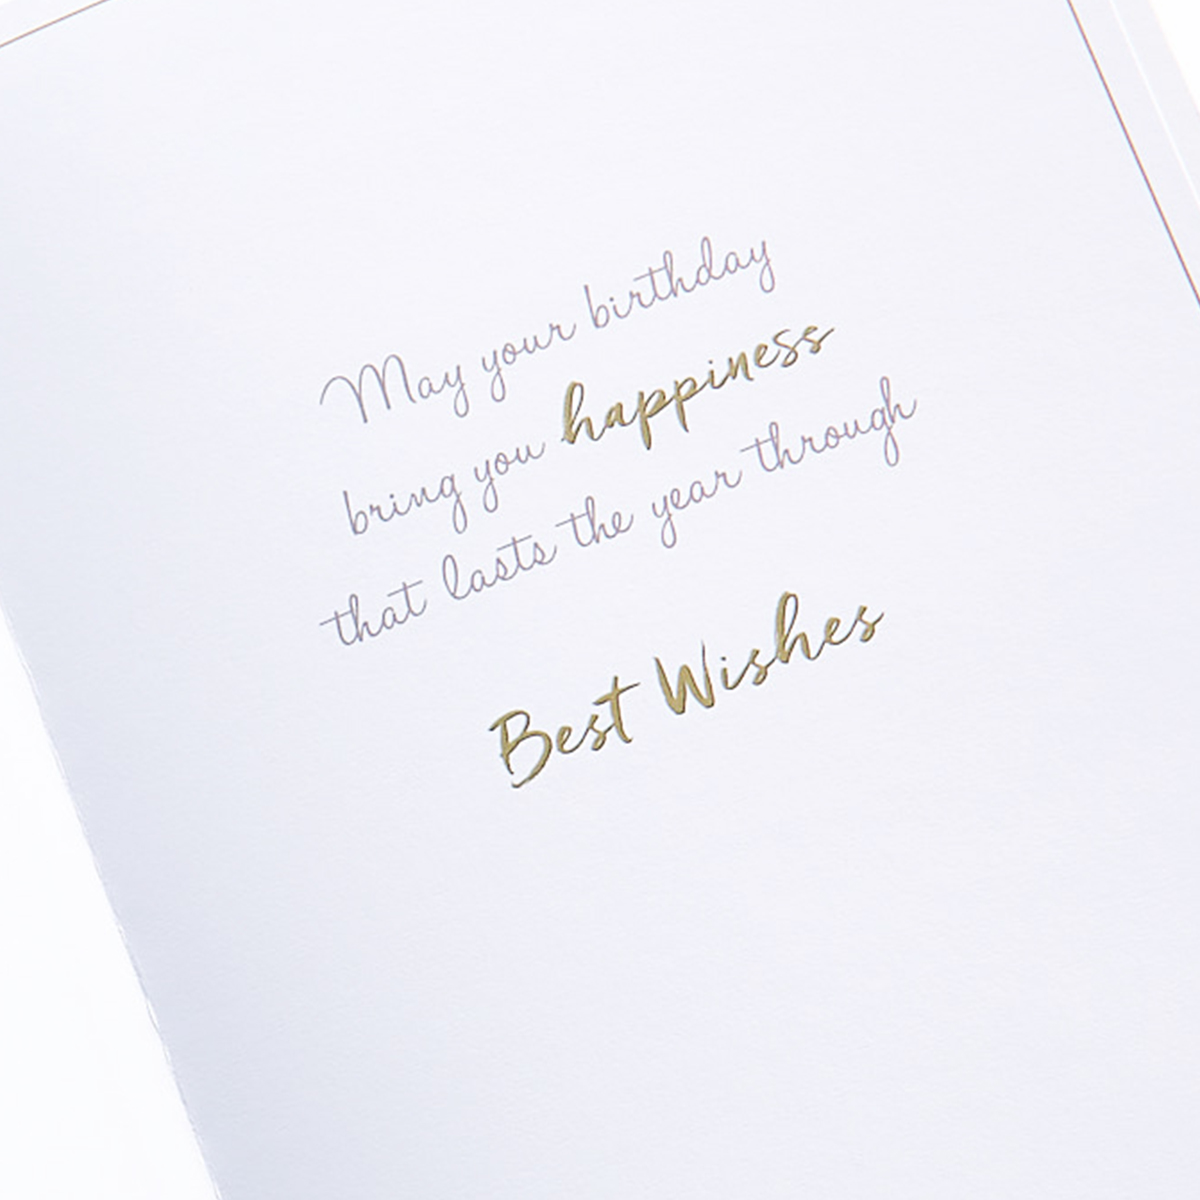 May your birthday
bring you happiness
that lasts the year through
Best Wishes